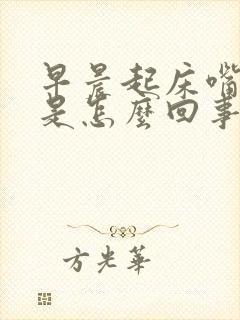 早晨起床嘴
是怎麼回事
方光華